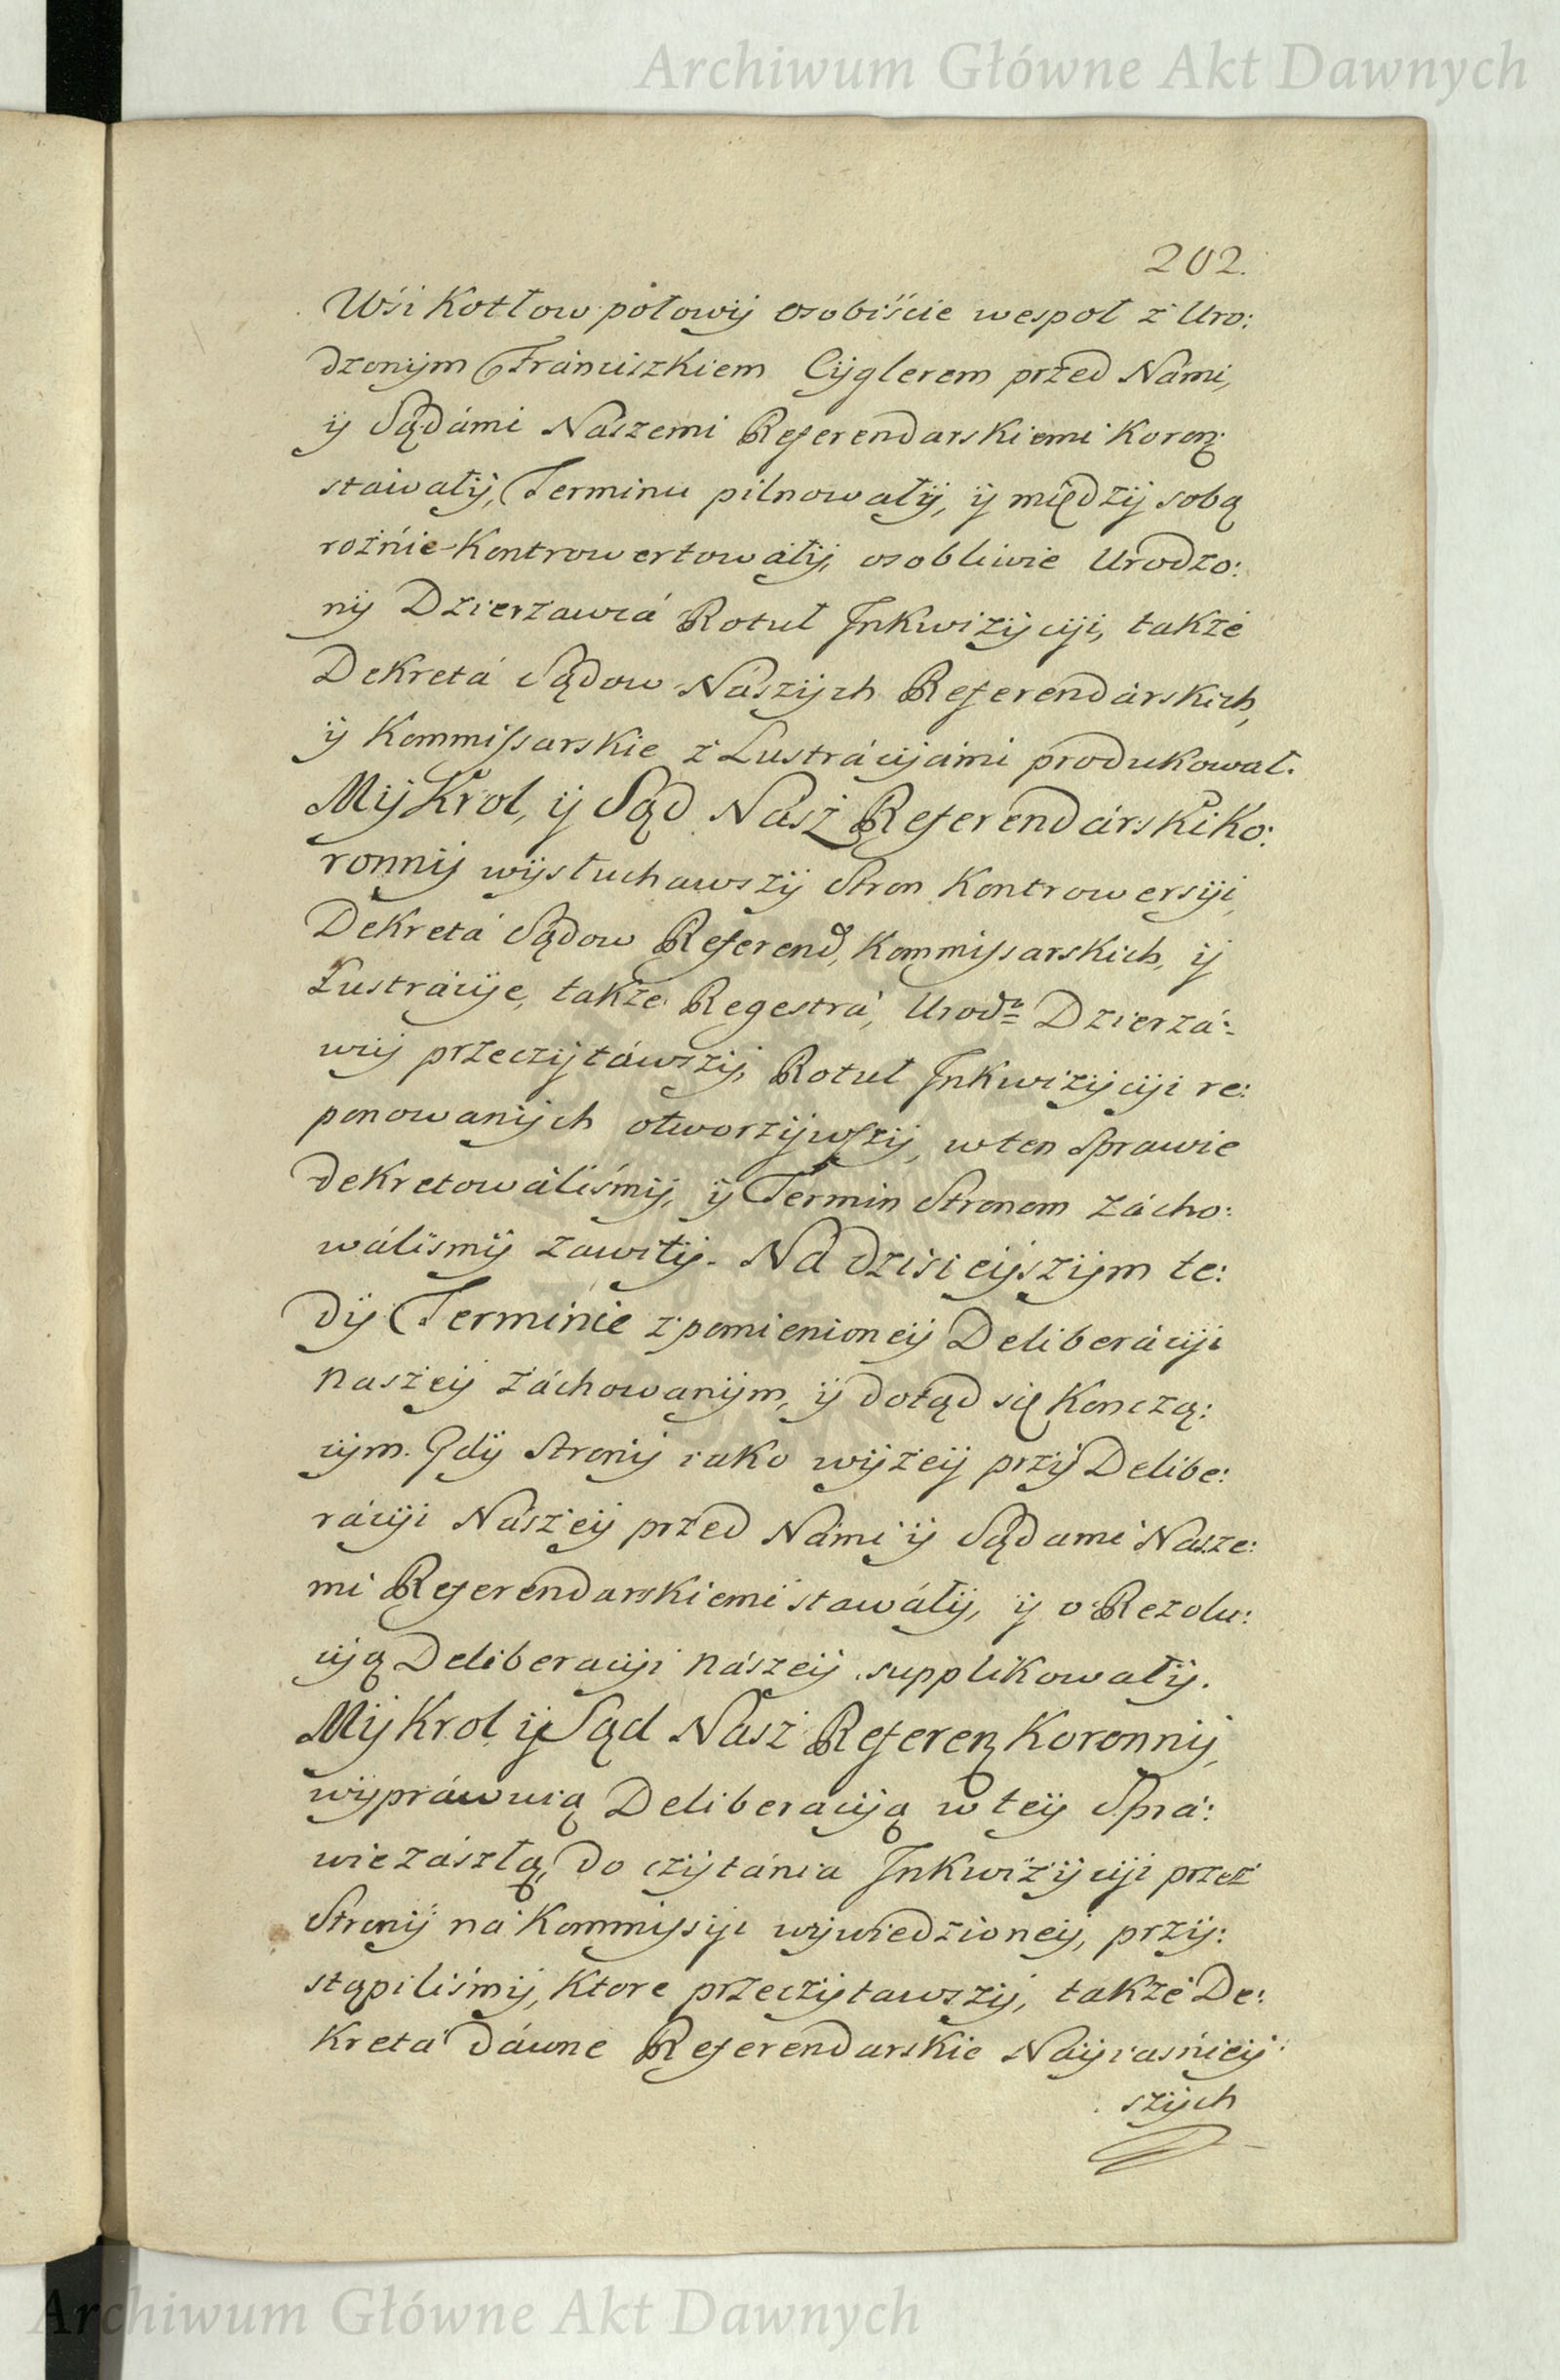 Archiwum Główne Akt Dawnych
202.
Wśi Kotłow połowij osobiście wespoł z Uro:
dzonijm Franciszkiem Cijglerem przed Námi,
ij Sądámi Nászemi Referendarskiemi Koron:
stawałij, Terminu pilnowałij, ij międzij sobą
rożnie Kontrowertowałij, osobliwie Urodzo:
nij Dzierzawcá Rotuł Jnkwizijciji, także
Dekretá Sądow Nászijch Referendárskich,
ij Kommissarskie z Lustrácijámi produkował.
Mij Krol, ij Sąd Nász Referendárski Ko:
ronnij wijsłuchawszij Stron Kontrowersiji,
Dekretá Sądow Referend, Kommissarskich, ij
Lustrácije, także Regestrá, Urod: Dzierzá:
wij przeczijtáwszij, Rotuł Jnkwizijciji re:
ponowanijch otworzijwszij, w ten Sprawie
dekretowáliśmij, ij Termin Stronom zácho:
wáliśmij zawitij. Na dzisieijszijm te:
dij Terminie z pomienioneij Deliberáciji
naszeij záchowanijm, ij dotąd się Kończą:
cijm. Gdij Stronij iako wijżeij przij Delibe:
ráciji Nászeij przed Námi ij Sądami Násze:
mi Referendarskiemi stawáłij, ij o Rezolu:
ciją Deliberaciji nászeij supplikowałij.
Mij Krol ij Sąd Nasz Referen Koronnij,
wijpráwuią Deliberaciją w teij Sprá:
wie zászłą, do czijtánia Jnkwizijciji przez
Stronij ná Kommissiji wijwiedzioneij, przij:
stąpiliśmij, Ktore przeczijtawszij, także De:
kretá dáwne Referendarskie Naijiaśnieij
szijch
Archiwum Główne Akt Dawnych